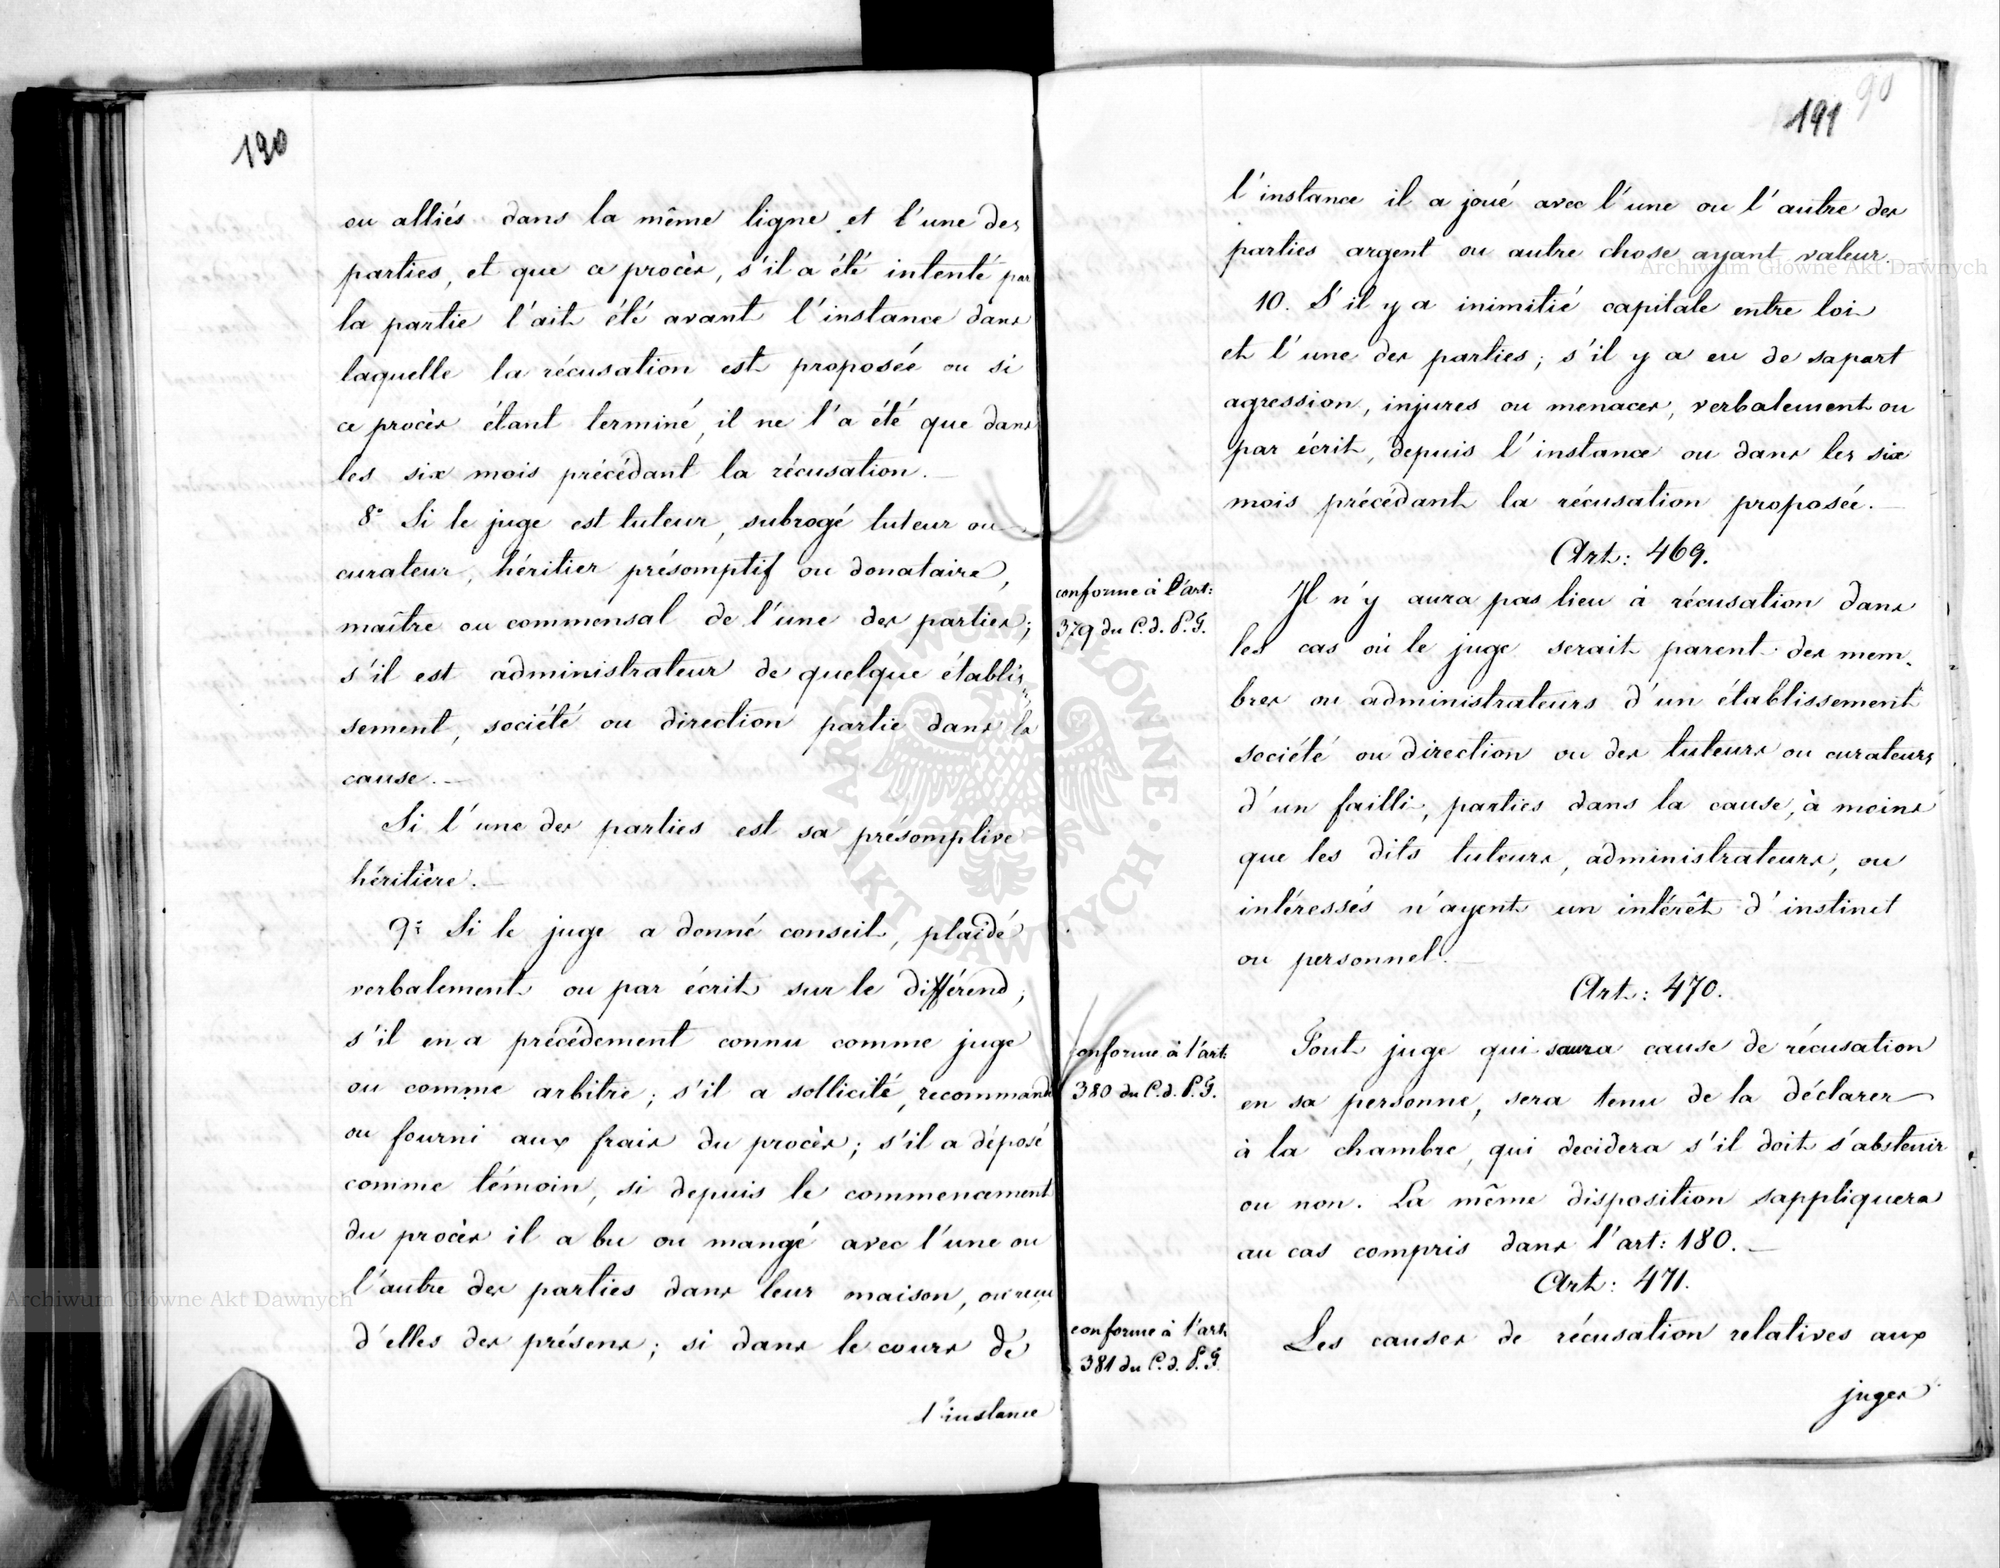 190
ou alliés dans la même ligne et l'une des
parties, et que ce procès, s'il a été intenté par
la partie l'ait été avant l'instance dans
laquelle la récusation est proposée ou si
ce procès étant terminé, il ne l'a été que dans
les six mois précédant la récusation.
8° Si le juge est tuteur, subrogé tuteur ou
curateur, héritier présomptif ou donataire,
maître ou commensal de l'une des parties;
s'il est administrateur de quelque établis-
sement, société ou direction partie dans la
cause.
Si l'une des parties est sa présomptive
héritière.
9° Si le juge a donné conseil, plaidé
verbalement ou par écrit sur le différend;
s'il en a précédement connu comme juge
ou comme arbitre; s'il a sollicité, recommandé
ou fourni aux frais du procès; s'il a déposé
comme témoin, si depuis le commencement
du procès il a bu ou mangé avec l'une ou
l'autre des parties dans leur maison, ou reçu
d'elles des présens; si dans le cours de
l'instance
191
90
l'instance il a joué avec l'une ou l'autre des
parties argent ou autre chose ayant valeur.
10. S'il y a inimitié capitale entre loi
et l'une des parties; s'il y a eu de sa part
agression, injures ou menaces, verbalement ou
par écrit, depuis l'instance ou dans les six
mois précédant la récusation proposée.
Art: 469.
conforme à l'art:
379 du C.d. P.G.
Il n'y aura pas lieu à récusation dans
les cas où le juge serait parent des mem-
bres ou administrateurs d'un établissement
société ou direction ou des tuteurs ou curateurs
d'un failli, parties dans la cause, à moins
que les dits tuteurs, administrateurs, ou
intéressés n'ayent un intérêt d'instinct
ou personnel.
Art: 470.
conforme à l'art:
380 du C.d. P.G.
Tout juge qui saura cause de récusation
en sa personne, sera tenu de la déclarer
à la chambre, qui decidera s'il doit s'abstenir
ou non. La même disposition sappliquera
au cas compris dans l'art: 180.
Art: 471.
conforme à l'art
381 du C.d. P.G.
Les causes de récusation relatives aux
juges
Archiwum Główne Akt Dawnych
Archiwum Główne Akt Dawnych
ARCHIWUM GŁÓWNE · AKT DAWNYCH ·